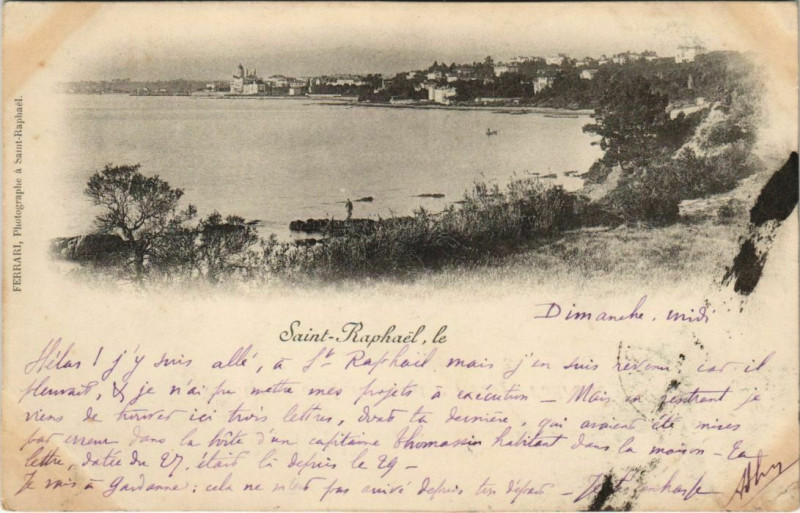 FERRARI, Photographe à Saint-Raphaël.
Saint-Raphaël, le
Dimanche, midi
Hélas ! j'y suis allé, à St Raphaël, mais j'en suis revenu car il
pleuvait, & je n'ai pu mettre mes projets à exécution — Mais en rentrant je
viens de trouver ici trois lettres, dont ta dernière, qui avaient été mises
par erreur dans la boîte d'un capitaine Thomassin habitant dans la maison — Ta
lettre, datée du 27, était là depuis le 29 —
Je vais à Gardanne : cela ne m'est pas arrivé depuis ton départ —